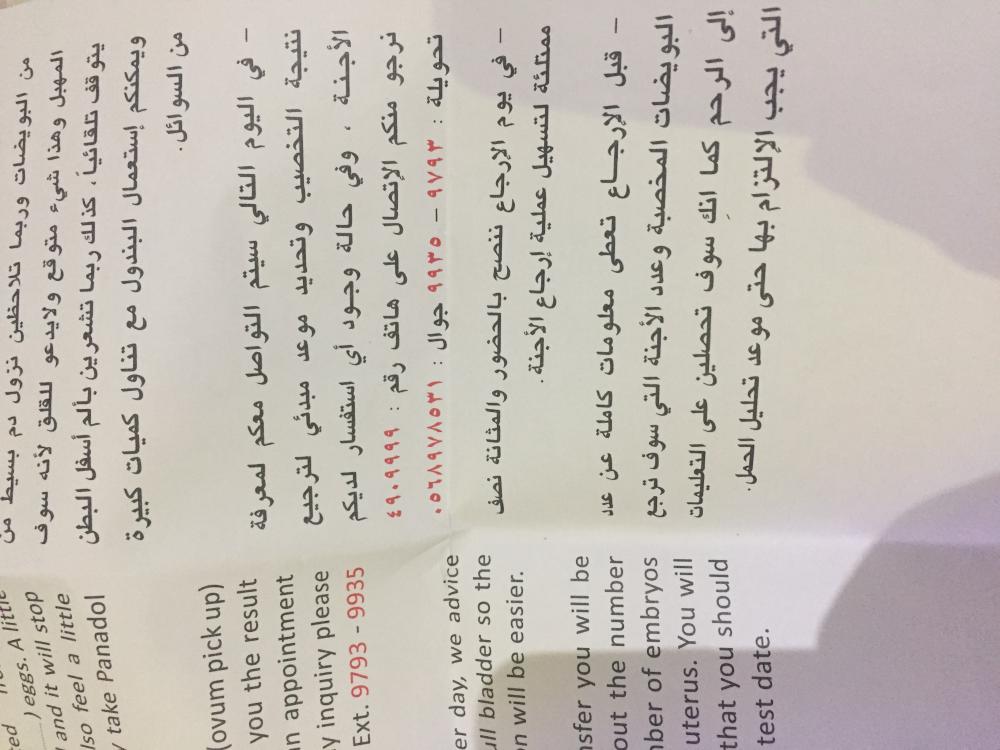 ) eggs. A little
and it will stop
lso feel a little
take Panadol
(ovum pick up)
you the result
n appointment
y inquiry please
Ext. 9793 - 9935
er day, we advice
ull bladder so the
on will be easier.
nsfer you will be
out the number
nber of embryos
uterus. You will
that you should
test date.
من البويضات وربما تلاحظين نزول دم بسيط من
المهبل وهذا شيء متوقع ولايدعو للقلق لأنه سوف
يتوقف تلقائياً، كذلك ربما تشعرين بألم أسفل البطن
ويمكنكم إستعمال البندول مع تناول كميات كبيرة
من السوائل.
– في اليوم التالي سيتم التواصل معكم لمعرفة
نتيجة التخصيب وتحديد موعد مبدئي لترجيع
الأجنة ، وفي حالة وجود أي استفسار لديكم
نرجو منكم الإتصال على هاتف رقم : ٤٩٠٩٩٩٩
تحويلة : ٩٧٩٣ – ٩٩٣٥ جوال : ٠٥٦٨٩٧٨٥٣١
– في يوم الإرجاع ننصح بالحضور والمثانة نصف
ممتلئة لتسهيل عملية إرجاع الأجنة.
– قبل الإرجاع تعطى معلومات كاملة عن عدد
البويضات المخصبة وعدد الأجنة التي سوف ترجع
إلى الرحم كما انكِ سوف تحصلين على التعليمات
التي يجب الإلتزام بها حتى موعد تحليل الحمل.